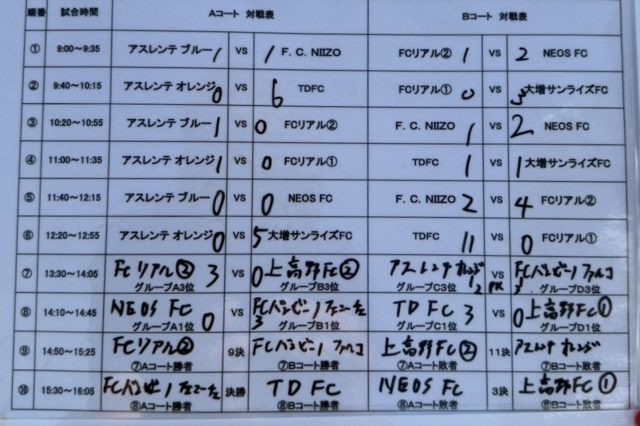 順番 試合時間 Aコート 対戦表 Bコート 対戦表
① 9:00~9:35 アスレンテ ブルー 1 VS 1 F. C. NIIZO FCリアル② 1 VS 2 NEOS FC
② 9:40~10:15 アスレンテ オレンジ 0 VS 6 TDFC FCリアル① 0 VS 3 大増サンライズFC
③ 10:20~10:55 アスレンテ ブルー 1 VS 0 FCリアル② F. C. NIIZO 1 VS 2 NEOS FC
④ 11:00~11:35 アスレンテ オレンジ 1 VS 0 FCリアル① TDFC 1 VS 1 大増サンライズFC
⑤ 11:40~12:15 アスレンテ ブルー 0 VS 0 NEOS FC F. C. NIIZO 2 VS 4 FCリアル②
⑥ 12:20~12:55 アスレンテ オレンジ 0 VS 5 大増サンライズFC TDFC 11 VS 0 FCリアル①
⑦ 13:30~14:05 FCリアル② 3 VS 0 上高野FC② アスレンテ オレンジ 2 VS PK 3 FCバンビーノ ファルコ
グループA3位 グループB3位 グループC3位 グループD3位
⑧ 14:10~14:45 NEOS FC 0 VS 3 FCバンビーノ フェニーチェ TD FC 3 VS 0 上高野FC①
グループA1位 グループB1位 グループC1位 グループD1位
⑨ 14:50~15:25 FCリアル② 9決 FCバンビーノ ファルコ 上高野FC② 11決 アスレンテ オレンジ
⑦Aコート勝者 ⑦Bコート勝者 ⑦Aコート敗者 ⑦Bコート敗者
⑩ 15:30~16:05 FCバンビーノ フェニーチェ 決勝 TD FC NEOS FC 3決 上高野FC①
⑧Aコート勝者 ⑧Bコート勝者 ⑧Aコート敗者 ⑧Bコート敗者